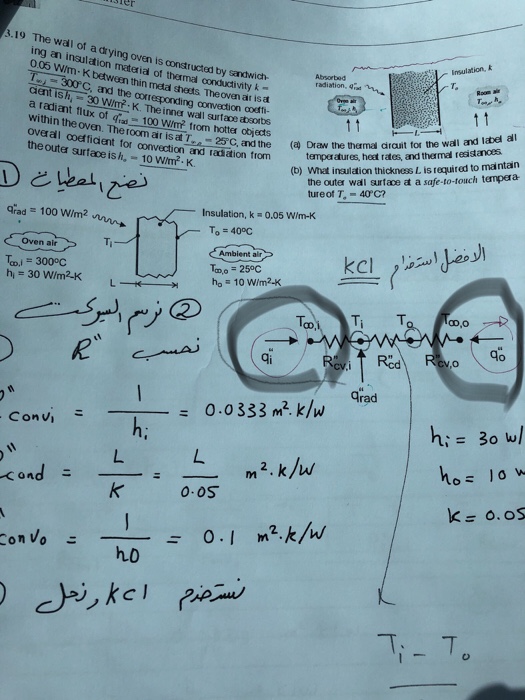 3.19 The wall of a drying oven is constructed by sandwich-
ing an insulation material of thermal conductivity k =
0.05 W/m · K between thin metal sheets. The oven air is at
T∞,i = 300°C, and the corresponding convection coeffi-
cient is hi = 30 W/m² · K. The inner wall surface absorbs
a radiant flux of q"rad = 100 W/m² from hotter objects
within the oven. The room air is at T∞,o = 25°C, and the
overall coefficient for convection and radiation from
the outer surface is ho = 10 W/m² · K.
Absorbed
radiation, q"rad
Insulation, k
To
Oven air
T∞,i, hi
Room air
T∞,o, ho
L
(a) Draw the thermal circuit for the wall and label all
temperatures, heat rates, and thermal resistances.
(b) What insulation thickness L is required to maintain
the outer wall surface at a safe-to-touch tempera-
ture of To = 40°C?
① نضع المعطيات
q"rad = 100 W/m2
Insulation, k = 0.05 W/m-K
Ti
To = 40°C
Oven air
T∞,i = 300°C
hi = 30 W/m2-K
Ambient air
T∞,o = 25°C
ho = 10 W/m2-K
L
الافضل استخدام KCl
② نرسم السيركت
نحسب R"
T∞,i Ti To T∞,o
q"i R"cv,i R"cd R"cv,o q"o
q"rad
convi = 1/hi = 0.0333 m².k/w
cond = L/K = L/0.05 m².k/w
convo = 1/ho = 0.1 m².k/w
hi = 30 w/
ho = 10 w
K = 0.05
نستخدم KCl ونحل
Ti - To